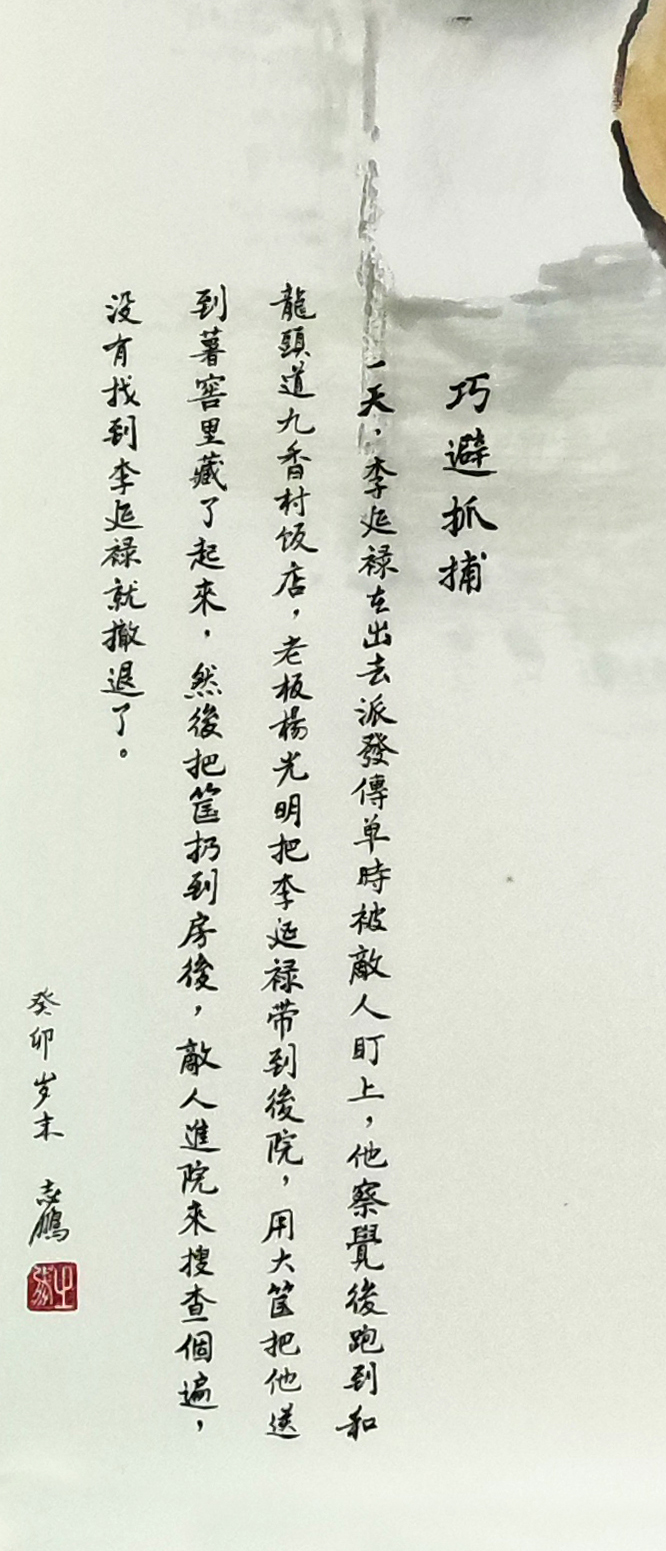 巧避抓捕
一天，李延禄在出去派發傳单時被敵人盯上，他察覺後跑到和
龍頭道九香村饭店，老板楊光明把李延禄带到後院，用大筐把他送
到薯窖里藏了起來，然後把筐扔到房後，敵人進院來搜查個遍，
没有找到李延禄就撤退了。
癸卯岁末 志鵬